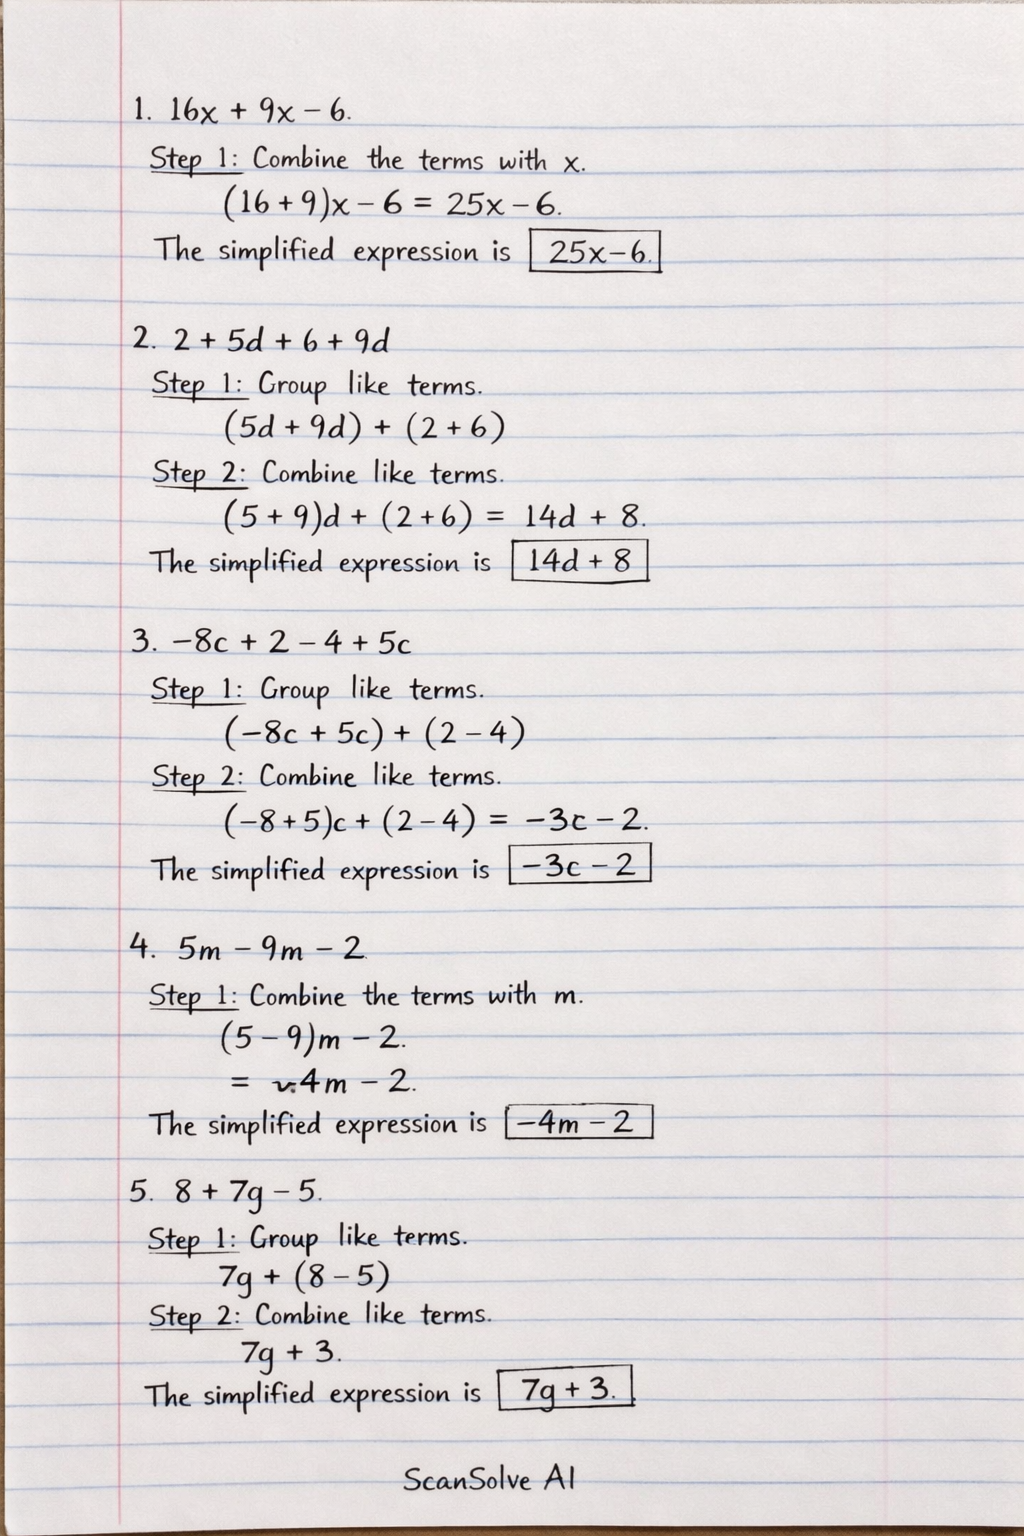 1. 16x + 9x − 6.
Step 1: Combine the terms with x.
(16 + 9)x − 6 = 25x − 6.
The simplified expression is 25x − 6.
2. 2 + 5d + 6 + 9d
Step 1: Group like terms.
(5d + 9d) + (2 + 6)
Step 2: Combine like terms.
(5 + 9)d + (2 + 6) = 14d + 8.
The simplified expression is 14d + 8
3. −8c + 2 − 4 + 5c
Step 1: Group like terms.
(−8c + 5c) + (2 − 4)
Step 2: Combine like terms.
(−8 + 5)c + (2 − 4) = −3c − 2.
The simplified expression is −3c − 2
4. 5m − 9m − 2
Step 1: Combine the terms with m.
(5 − 9)m − 2.
= 4m − 2.
The simplified expression is −4m − 2
5. 8 + 7g − 5.
Step 1: Group like terms.
7g + (8 − 5)
Step 2: Combine like terms.
7g + 3.
The simplified expression is 7g + 3.
ScanSolve AI